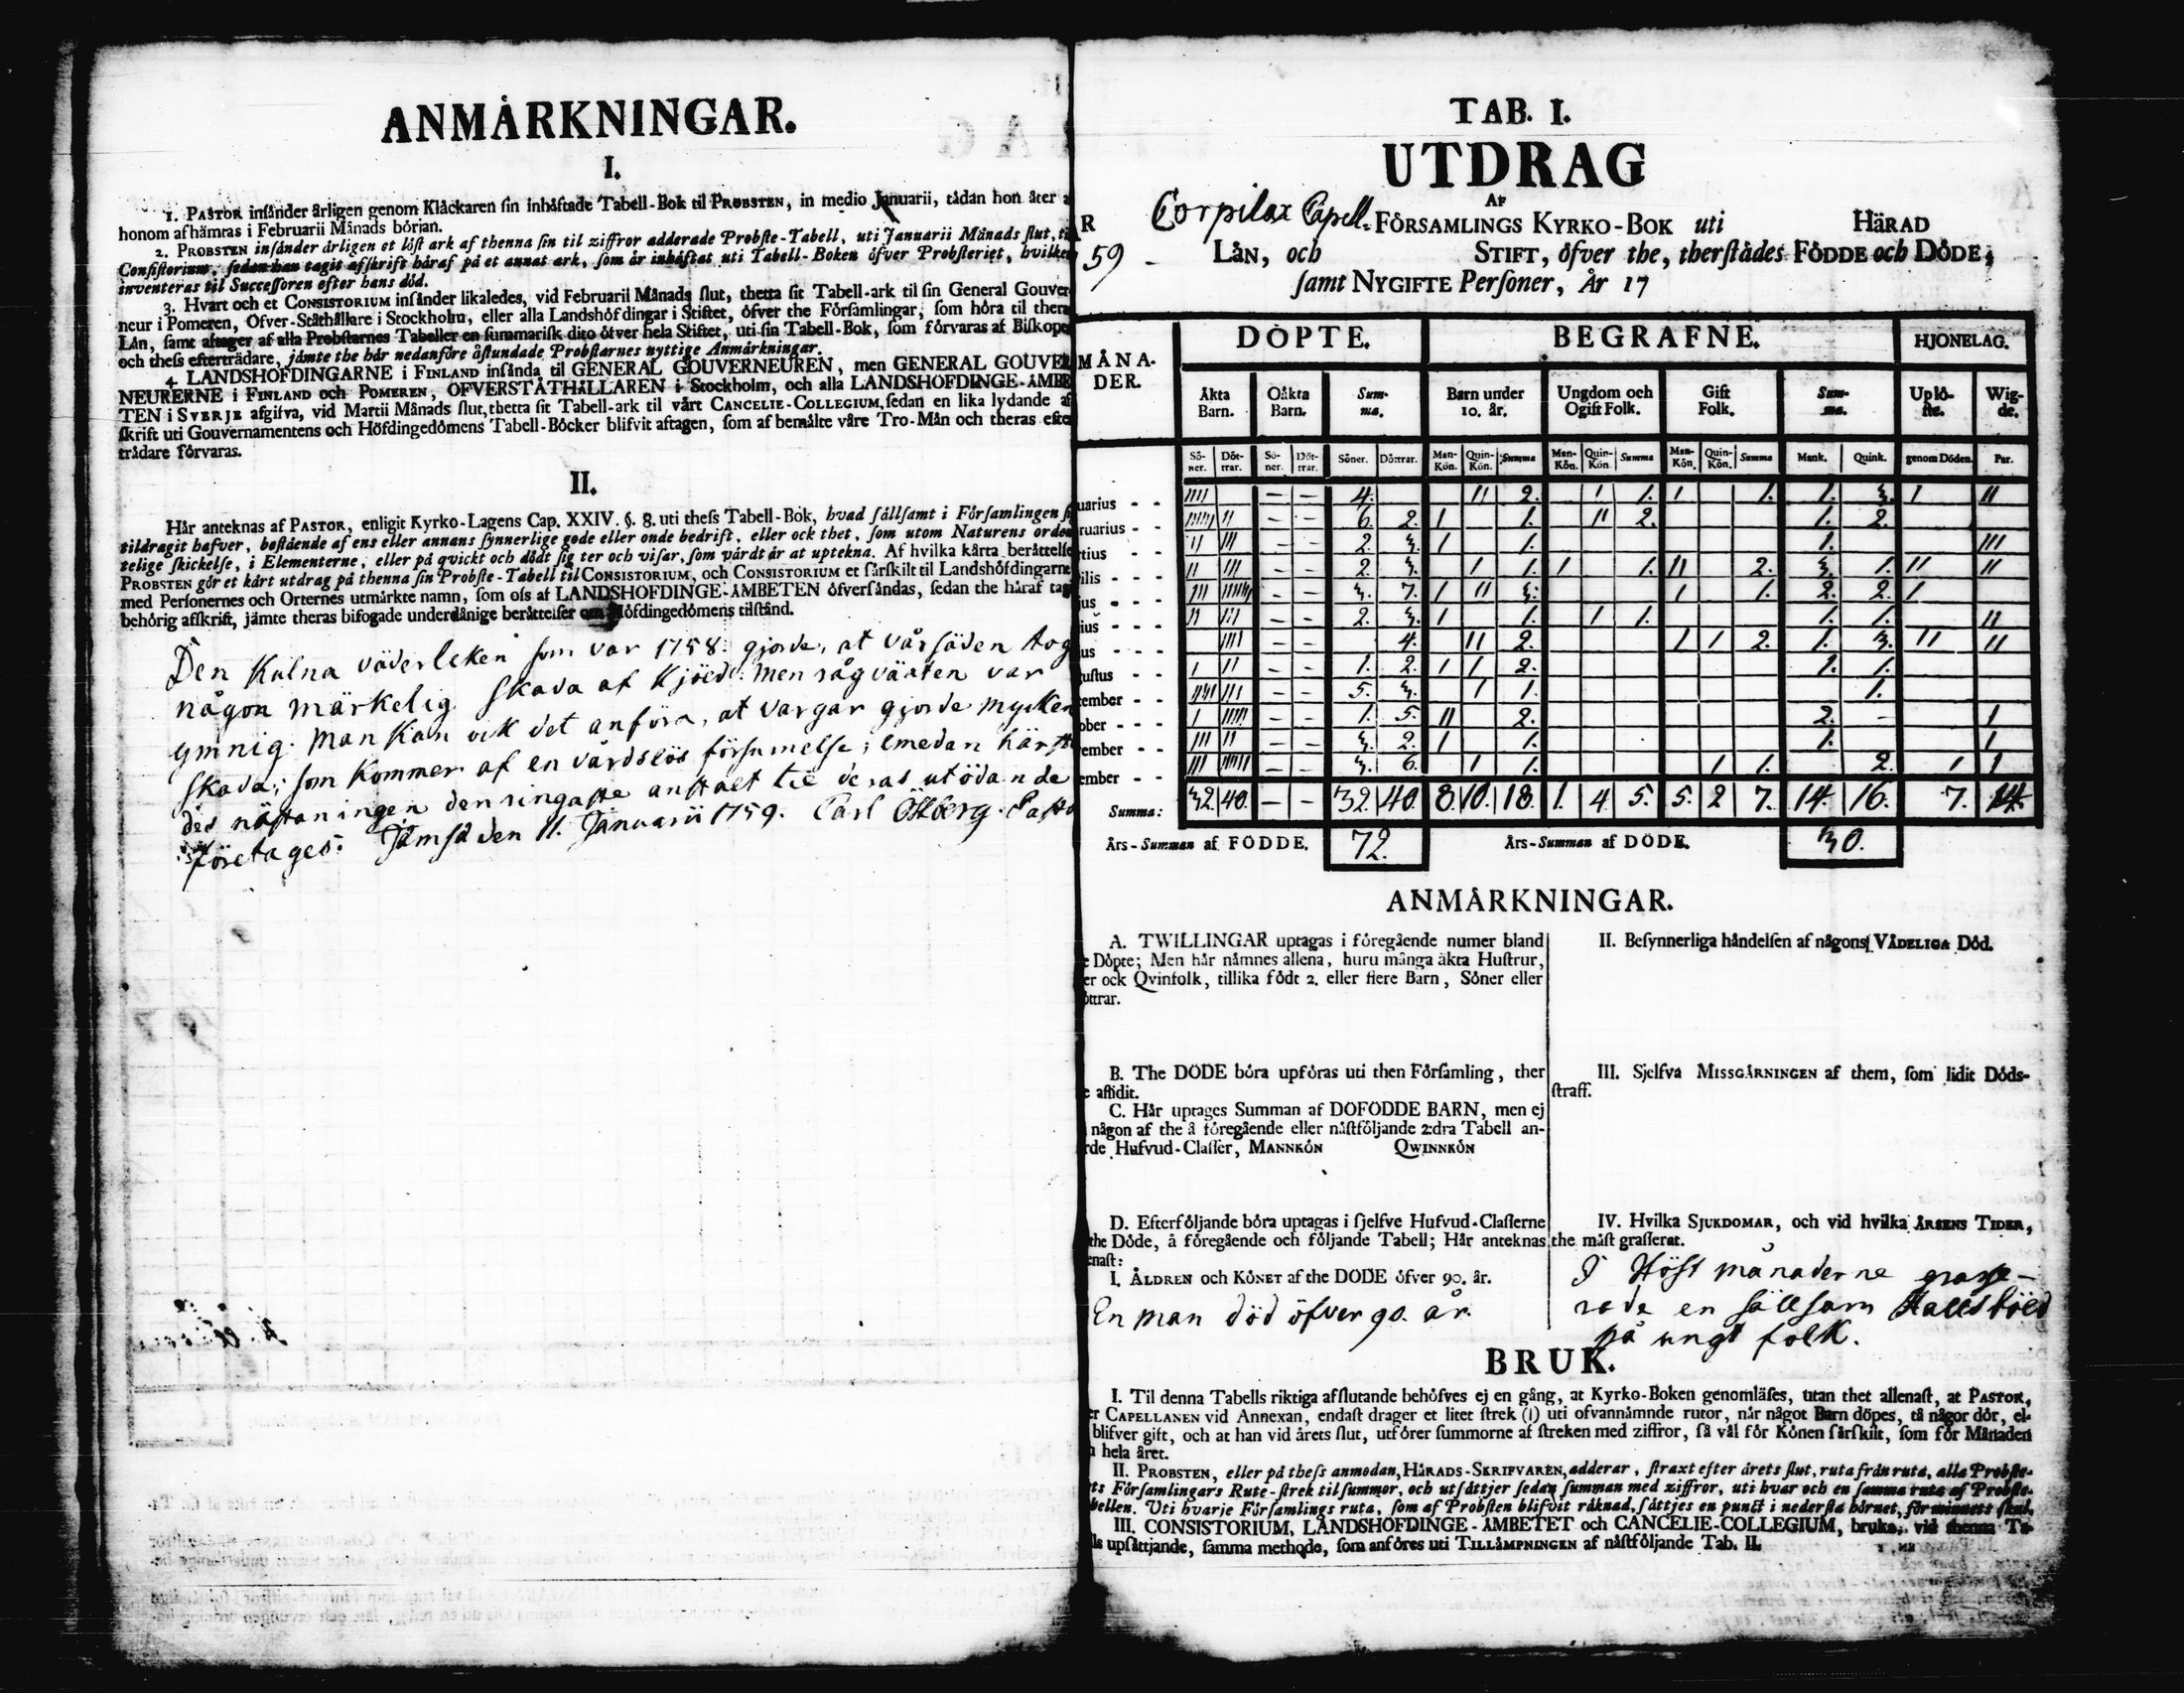 ANMÅRKNINGAR.
I.
1. PASTOR insånder årligen genom Klåckaren sin inhåftade Tabell-Bok til PROBSTEN, in medio Januarii, tådan hon åter a
honom afhämtas i Februarii Månads början.
2. PROBSTEN insånder årligen et löst ark af thenna sin til ziffror adderade Probste-Tabell, uti Januarii Månads slut, til
Consistorium, sedan han tagit afskrift håraf på et annat ark, som år inhåftat uti Tabell-Boken öfver Probsteriet, hvilken
inventeras til Successoren efter hans död.
3. Hvart och et CONSISTORIUM insånder likaledes, vid Februarii Månads slut, thetta sit Tabell-ark til sin General Gouver-
neur i Pomeren, Ofver-Ståthållare i Stockholm, eller alla Landshöfdingar i Stiftet, öfver the Församlingar, som höra til thera
Lån, samt aftager af alla Probstarnes Tabeller en summarisk dito öfver hela Stiftet, uti sin Tabell-Bok, som förvaras af Biskopen
och thess efterträdare, jämte the hår nedanföre åstundade Probstarnes nyttige Anmårkningar.
4. LANDSHÖFDINGARNE i FINLAND insånda til GENERAL GOUVERNEUREN, men GENERAL GOUVER
NEURERNE i FINLAND och POMEREN, ÖFVERSTÅTHÅLLAREN i Stockholm, och alla LANDSHÖFDINGE-ÅMBE
TEN i SVERJE afgifva, vid Martii Månads slut, thetta sit Tabell-ark til vårt CANCELIE-COLLEGIUM, sedan en lika lydande af
skrift uti Gouvernamentens och Höfdingedömens Tabell-Böcker blifvit aftagen, som af bemålte våre Tro-Mån och theras efte
trådare förvaras.
II.
Hår anteknas af PASTOR, enligit Kyrko-Lagens Cap. XXIV. §. 8. uti thess Tabell-Bok, hvad sållsamt i Församlingen si
tildragit hafver, bestående af ens eller annans synnerlige gode eller onde bedrift, eller ock thet, som utom Naturens orden
telige skickelse, i Elementerne, eller på qvickt och dödt sig ter och visar, som vårdt år at uptekna. Af hvilka kårta beråttelse
PROBSTEN gör et kårt utdrag på thenna sin Probste-Tabell til CONSISTORIUM, och CONSISTORIUM et sårskilt til Landshöfdingarne
med Personernes och Orternes utmårkte namn, som oss af LANDSHÖFDINGE-ÅMBETEN öfversåndas, sedan the håraf tag
behörig afskrift, jämte theras bifogade underdånige beråttelser om Höfdingedömens tilstånd.
Den Kulna väderleken som var 1758. gjorde, at vårsäden tog
någon märkelig skada af Kjöld. Men rågväxten var
ymnig. Man Kan ock det anföra, at vargar gjorde mycken
skada; som Kommer af en vårdslös försumelse; emedan här
des nästan ingen den ringaste anstalt til deras utödande
företages. Jämsä den 11. Januarii 1759. Carl Östberg. Pasto
TAB. I.
UTDRAG
AF
Corpilax Capell. FÖRSAMLINGS KYRKO-BOK uti HÄRAD
59 LÅN, och STIFT, öfver the, therstådes FÖDDE och DÖDE,
samt NYGIFTE Personer, År 17
DÖPTE. BEGRAFNE. HJONELAG.
MÅNA-
DER. Åkta Barn. Oåkta Barn. Summa. Barn under 10. år. Ungdom och Ogift Folk. Gift Folk. Summa. Uplöste. Wigde.
Söner. Döttrar. Söner. Döttrar. Söner. Döttrar. Man-Kön. Quin-Kön. Summa Man-Kön. Quin-Kön. Summa Man-Kön. Quin-Kön. Summa Mank. Quink. genom Döden. Par.
uarius - - IIII — — 4. II 2. I 1. I 1. 1. 3. I II
ruarius - - IIIIII II — — 6. 2. I 1. II 2. 1. 2.
rtius - - II III — — 2. 3. I 1. 1. III
ilis - - - II III — — 2. 3. I 1. I 1. II 2. 3. 1. II II
jus - - - III IIIIIII — — 3. 7. I II 3. I 1. 2. 2. I
ius - - - II III — — 2. 3. I 1. I 1. 1. 1. II
us - - - IIII — — 4. II 2. I I 2. 1. 3. II II
gustus - - I II — — 1. 2. I I 2. 1. 1.
tember - - IIIII III — — 5. 3. I 1. 1.
ober - - - I IIIII — — 1. 5. II 2. 2. - I
vember - - III II — — 3. 2. I 1. 1. I
ember - - III IIIIII — — 3. 6. I 1. I 1. 2. I I
Summa: 32. 40. — — 32. 40. 8. 10. 18. 1. 4. 5. 5. 2 7. 14. 16. 7. 14.
Års-Summan af FÖDDE. 72. Års-Summan af DÖDE. 30.
ANMÅRKNINGAR.
A. TWILLINGAR uptagas i föregående numer bland
e Döpte; Men hår nåmnes allena, huru många åkta Hustrur,
er ock Qvinfolk, tillika födt 2. eller flere Barn, Söner eller
öttrar.
B. The DÖDE böra upföras uti then Församling, ther
e aflidit.
C. Hår uptages Summan af DÖFÖDDE BARN, men ej
någon af the å föregående eller nåstföljande 2:dra Tabell an-
rde Hufvud-Classer, MANNKÖN QWINNKÖN
D. Efterföljande böra uptagas i sjelfve Hufvud-Classerne
the Döde, å föregående och följande Tabell; Hår anteknas
enast:
I. ÅLDREN och KÖNET af the DÖDE öfver 90. år.
En man död öfver 90. år.
II. Besynnerliga håndelsen af någons VÅDELIGA Död.
III. Sjelfva MISSGÅRNINGEN af them, som lidit Döds-
straff.
IV. Hvilka SJUKDOMAR, och vid hvilka ÅRSENS TIDER,
the måst grasserat.
I Höst månaderne grasse-
rade en sällsam Hallsböld
på ungt folk.
BRUK.
I. Til denna Tabells riktiga afslutande behöfves ej en gång, at Kyrko-Boken genomläses, utan thet allenast, at PASTOR,
er CAPELLANEN vid Annexan, endast drager et litet strek (I) uti ofvannåmnde rutor, når något Barn döpes, tå någor dör, el-
blifver gift, och at han vid årets slut, utförer summorne af streken med ziffror, så vål för Könen sårskilt, som för Månaden
n hela året.
II. PROBSTEN, eller på thess anmodan, HÅRADS-SKRIFVAREN, adderar, straxt efter årets slut, ruta från ruta, alla Probste-
ts Församlingars Rute-strek til summor, och utsåttjer sedan summan med ziffror, uti hvar och en samma ruta af Probste-
bellen. Uti hvarje Församlings ruta, som af Probsten blifvit råknad, såttjes en punct i nedersta hörnet, för minnets skul.
III. CONSISTORIUM, LANDSHÖFDINGE-ÅMBETET och CANCELIE-COLLEGIUM, bruka, vid thenna Ta-
ls upsåttjande, samma methode, som anföres uti TILLÅMPNINGEN af nåstföljande Tab. II.